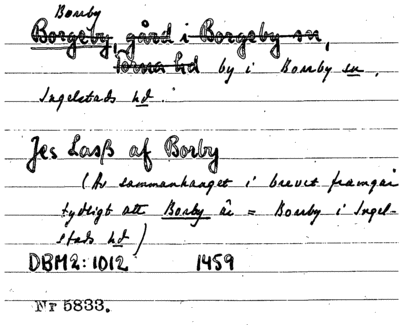 Bonby
Borgeby, gård i Borgeby sn,
Torna hd by i Bonby sn,
Ingelstads hd.
Jes Lasß af Borby
(Av sammanhanget i brevet framgår
tydligt att Borby är = Bonby i Ingel-
stads hd)
DBM2:1012 1459
Nr 5833.